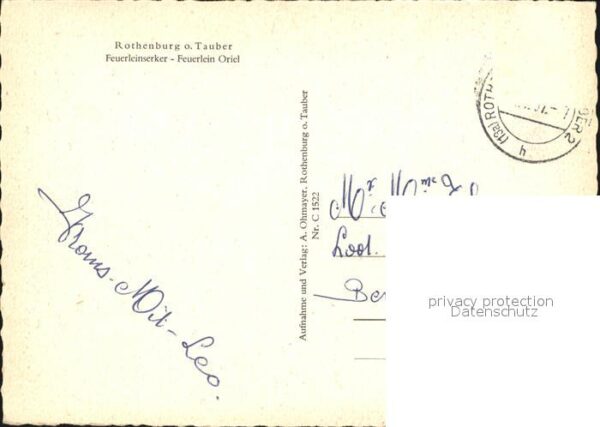 Rothenburg o. Tauber
Feuerleinserker - Feuerlein Oriel
Aufnahme und Verlag: A. Ohmayer, Rothenburg o. Tauber
Nr. C 1522
(13a) ROTH
BER 2
Mit - Leo.
privacy protection
Datenschutz